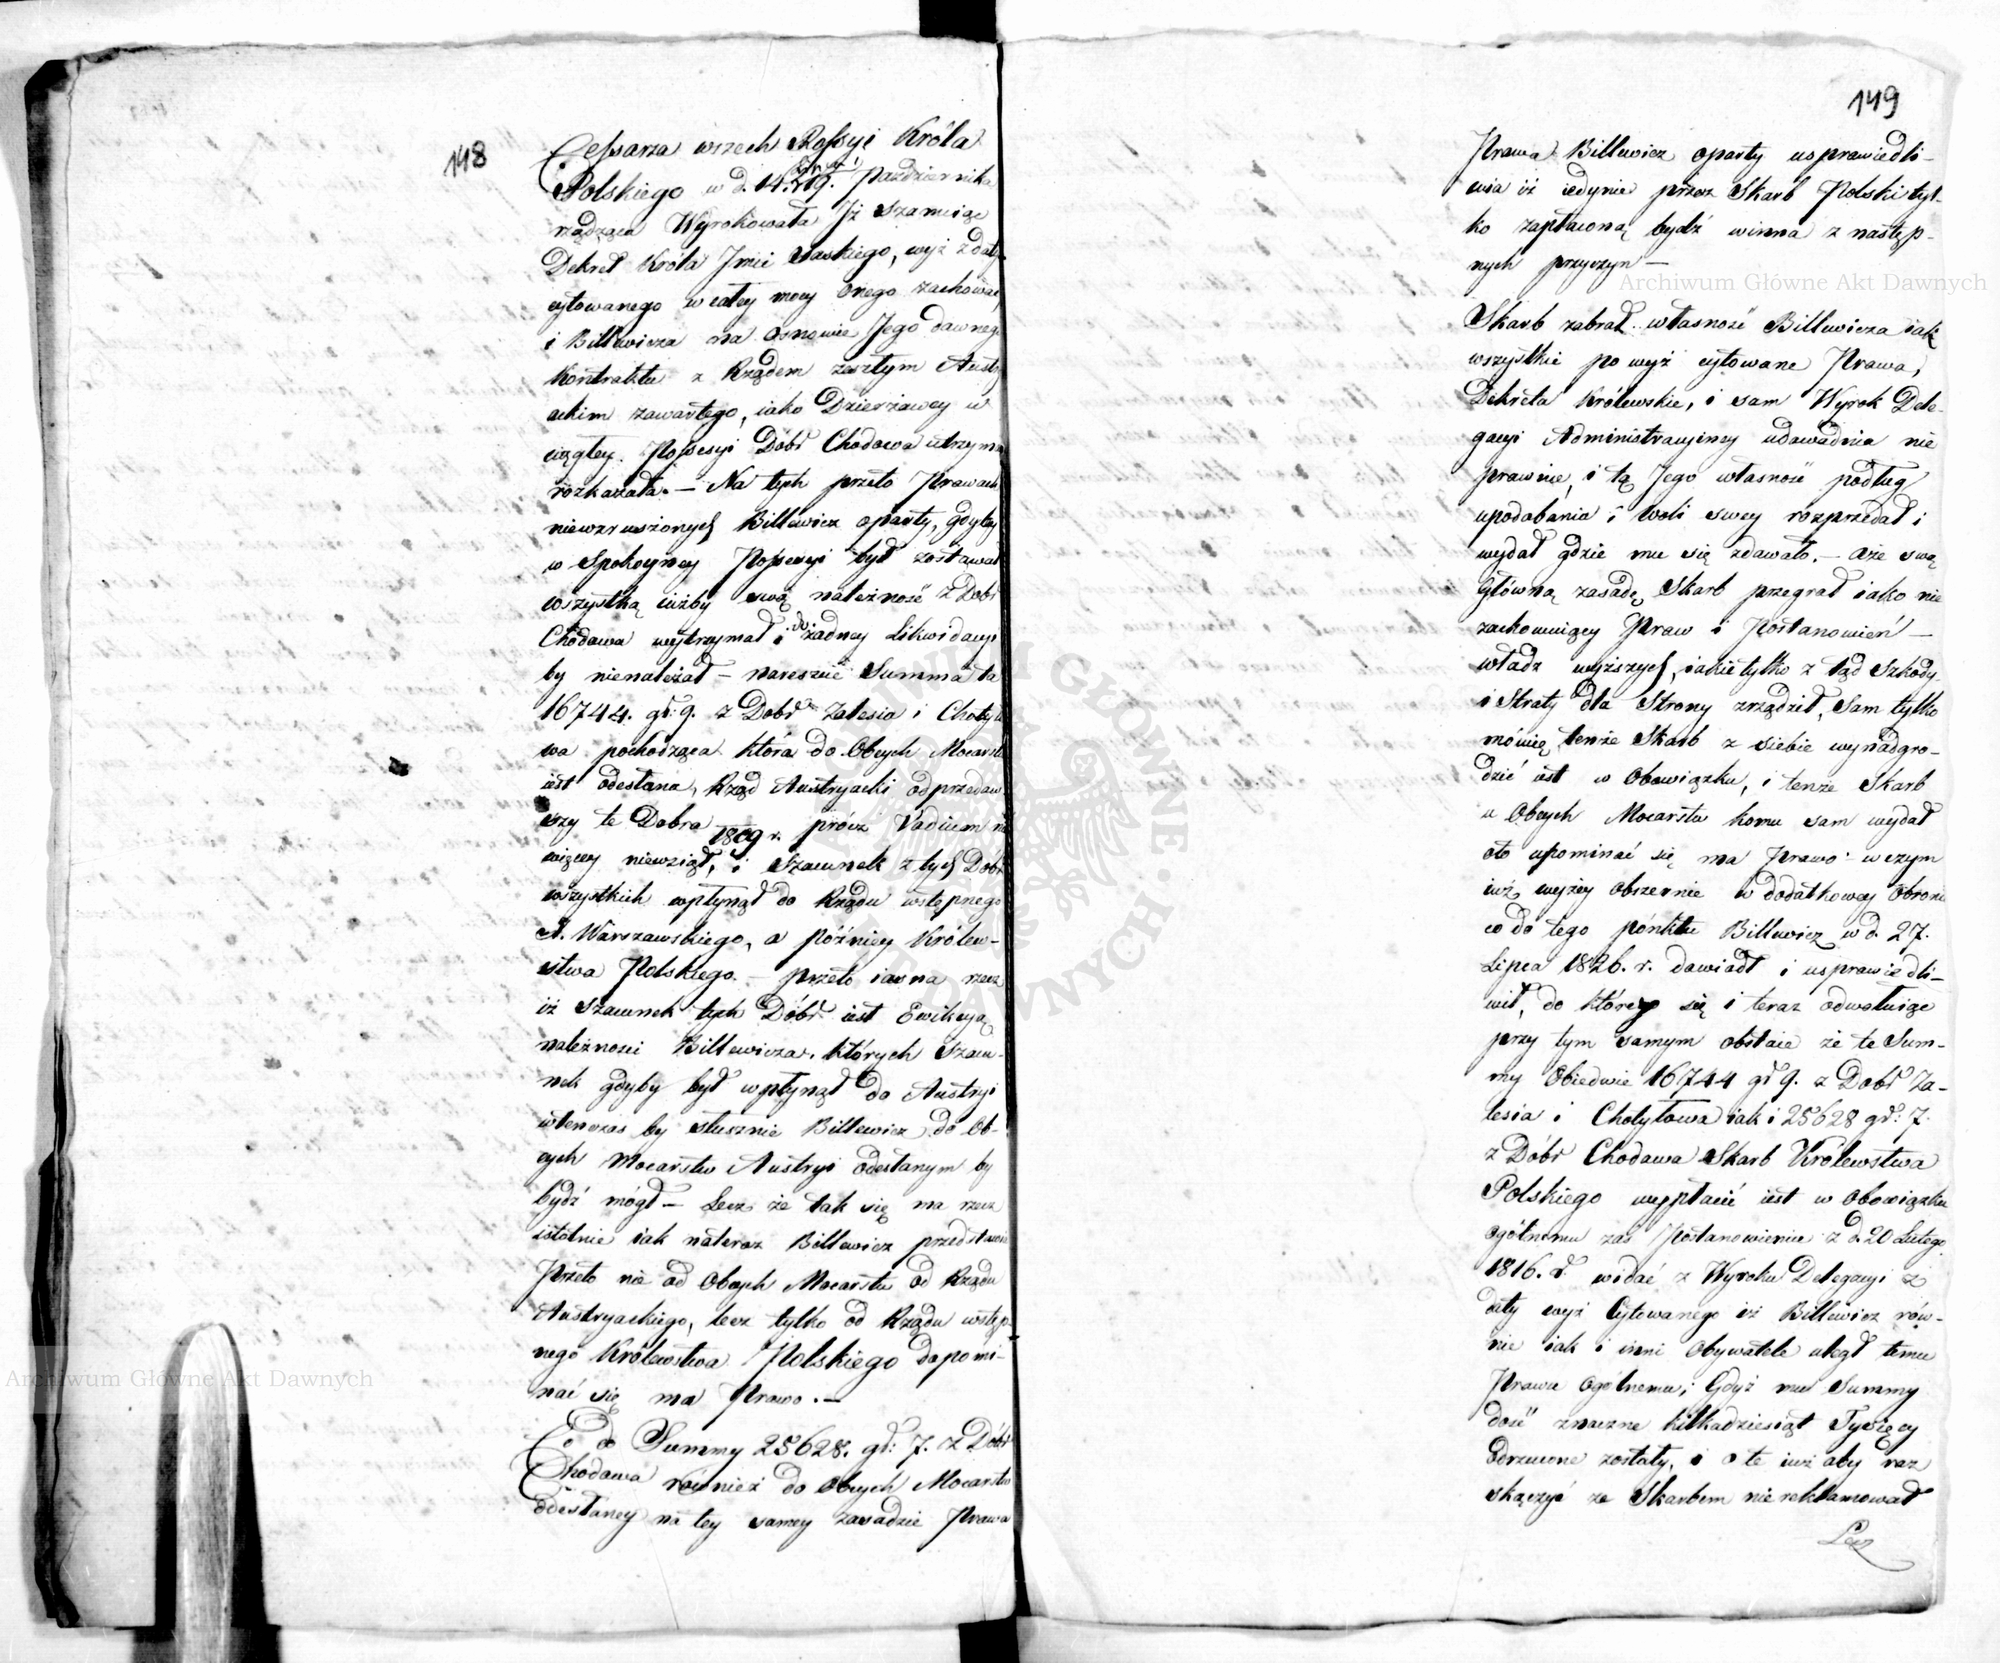 148
Cessarza wszech Rossyi Króla
Polskiego w d. 14. 1819. Października
rządząca Wyrokowała Iż szanuiąc
Dekret Króla Jmci Saskiego, wyż z daty
cytowanego w całey mocy onego zachować
i Billewicza na osnowie Jego dawnego
Kontraktu z Rządem zeszłym Austry
ackim zawartego, iako Dzierżawcy w
ciągłey Possesyi Dóbr Chodowa utrzymać
rozkazała. — Na tych przeto Prawach
niewzruszonych Billewicz oparty, gdyby
w Spokoyney Possesyi był zostawał
wszystką iużby swą należność z Dobr
Chodowa wytrzymał i do żadney Likwidacyi
by nienależał — nareszcie Summa ta
16744. gr: 9. z Dobr Zalesia i Chotyło
wa pochodząca która do Obcych Mocarstw
iest odesłana, Rząd Austryacki odprzedaw
szy te Dobra 1809 r. prócz Vadium nic
więcey niewziął, i Szacunek z tych Dóbr
wszystkich wpłynął do Rządu wstępnego
X. Warszawskiego, a późniey Królew-
stwa Polskiego. — przeto iasna rzecz
iż szacunek tych Dóbr iest Ewikcyą
należności Billewicza, których szacu-
nek gdyby był wpłynął do Austryi
wtenczas by słusznie Billewicz do Ob-
cych Mocarstw Austryi odesłanym by
bydź mógł — Lecz że tak się ma rzecz
istotnie iak nateraz Billewicz przedstawia
Przeto nie od Obcych Mocarstw od Rządu
Austryackiego, lecz tylko od Rządu wstęp-
nego Królewstwa Polskiego dopomi-
nać się ma Prawo. —
Co do Summy 25628. gr: 7. z Dóbr
Chodowa również do Obcych Mocarstw
odesłaney na tey samey zasadzie Prawa
149
Prawa Billewicz oparty usprawiedli-
wia iż iedynie przez Skarb Polski tyl-
ko zapłaconą bydź winna z następ-
nych przyczyn —
Skarb zabrał własność Billewicza iak
wszystkie powyż cytowane Prawa,
Dekreta Królewskie, i sam Wyrok Dele-
gacyi Administracyiney udawadnia nie
prawnie, i tą Jego własność podług
upodobania i woli swey rozprzedał i
wydał gdzie mu się zdawało. — aże swą
Główną zasadę Skarb przegrał iako nie
zachowuiący Praw i Postanowień —
władz wyższych, iakie tylko z tąd Szkody
i Straty dla Strony zrządził, Sam tylko
mówię tenże Skarb z siebie wynadgro-
dzić iest w Obowiązku, i tenże Skarb
u Obcych Mocarstw komu sam wydał
oto upominać się ma Prawo — w czym
iuż wyżey obszernie w dodatkowey Obronie
co do tego pónktu Billewicz w d. 27.
Lipca 1826. r. dowiódł i usprawiedli-
wił, do którey się i teraz odwołuiąc
przy tym samym obstaie że te Sum-
my Obiedwie 16744 gr 9. z Dobr Za-
lesia i Chotyłowa iak i 25628 gr: 7.
z Dóbr Chodowa Skarb Królewstwa
Polskiego wypłacić iest w Obowiązku
ogólnemu zaś Postanowieniu z d. 20 Lutego
1816. r. widać z Wyroku Delegacyi z
daty wyż Cytowanego iż Billewicz rów-
nie iak i inni Obywatele uległ temu
Prawu Ogólnemu; Gdyż mu Summy
dość znaczne kilkadziesiąt Tysięcy
Odrzucone zostały, i o te iuż aby raz
skączyć ze Skarbem nie reklamował
Lecz
Archiwum Główne Akt Dawnych
Archiwum Główne Akt Dawnych
ARCHIWUM GŁÓWNE AKT DAWNYCH